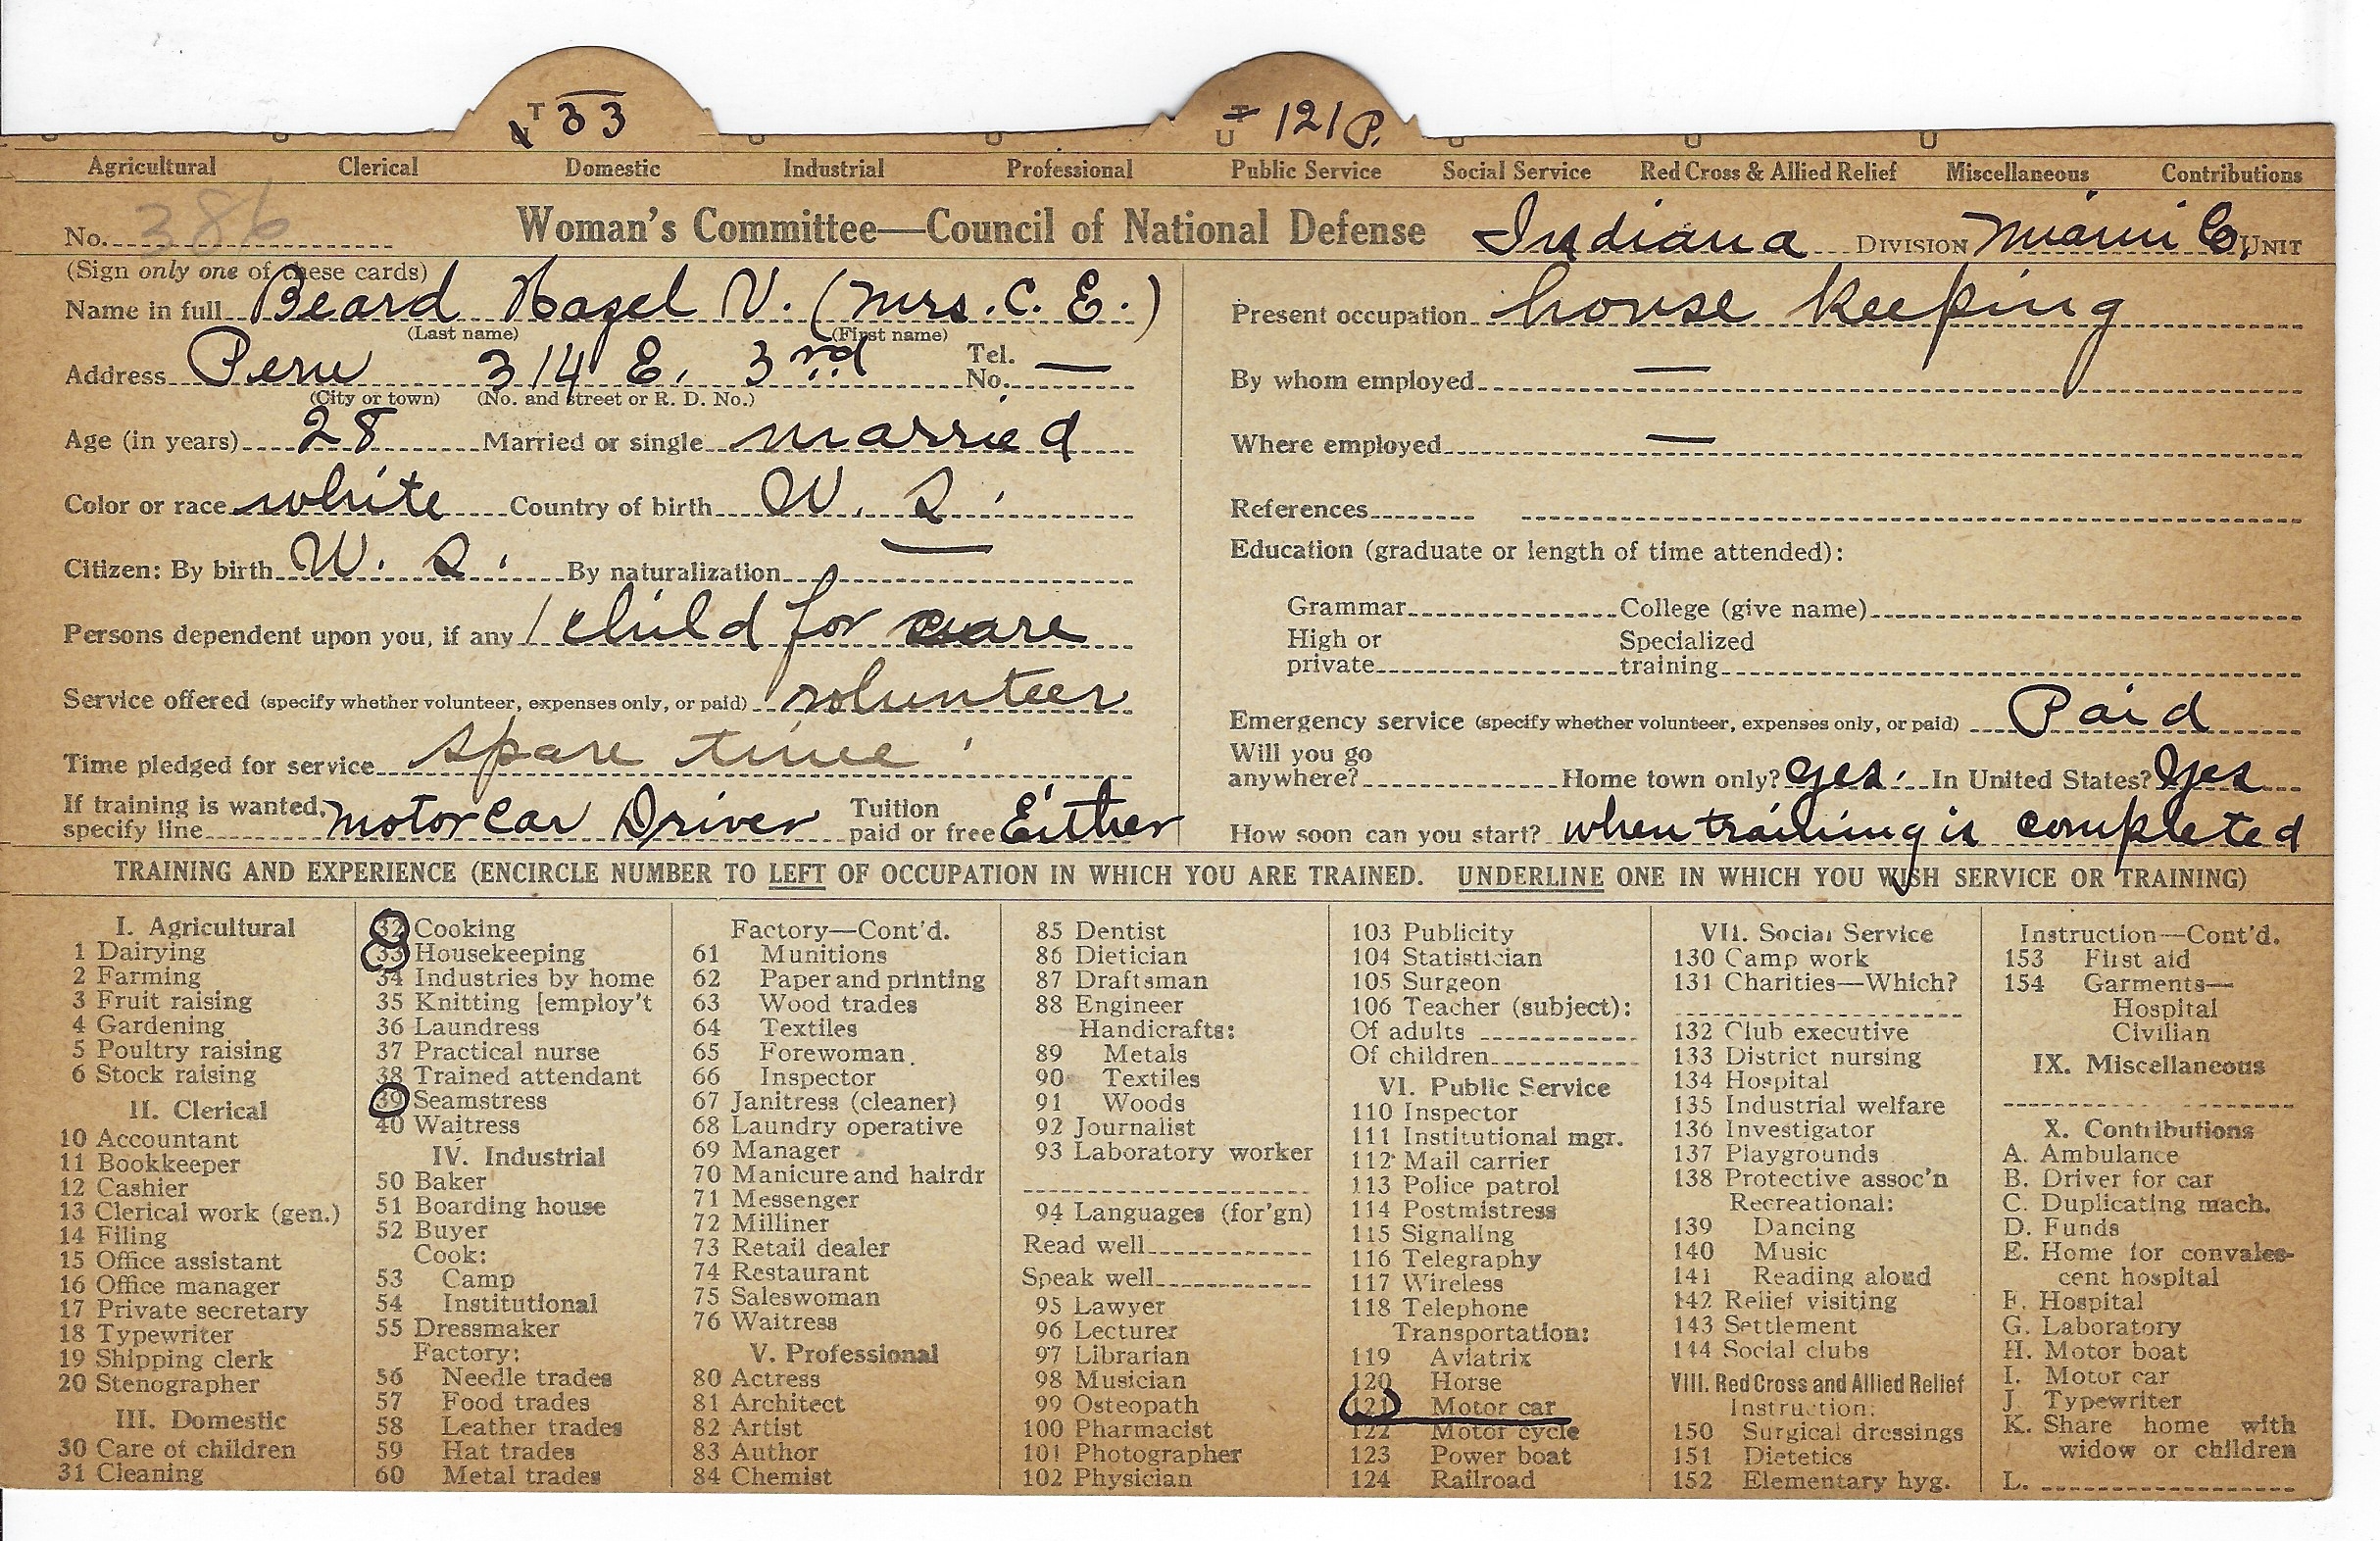 T 33
T
U 121 P.
Agricultural Clerical Domestic Industrial Professional Public Service Social Service Red Cross & Allied Relief Miscellaneous Contributions
No. 386 Woman's Committee—Council of National Defense Indiana DIVISION Miami Co. UNIT
(Sign only one of these cards)
Name in full Beard Hazel V. (Mrs. C. E.)
(Last name) (First name)
Address Peru 314 E. 3rd Tel. No. —
(City or town) (No. and street or R. D. No.)
Age (in years) 28 Married or single married
Color or race white Country of birth U. S.
Citizen: By birth U. S. By naturalization —
Persons dependent upon you, if any 1 child for care
Service offered (specify whether volunteer, expenses only, or paid) volunteer
Time pledged for service spare time
If training is wanted, specify line motor car Driver Tuition paid or free Either
Present occupation house keeping
By whom employed —
Where employed —
References
Education (graduate or length of time attended):
Grammar College (give name)
High or private Specialized training
Emergency service (specify whether volunteer, expenses only, or paid) Paid
Will you go anywhere? Home town only? yes. In United States? Yes
How soon can you start? when training is completed
TRAINING AND EXPERIENCE (ENCIRCLE NUMBER TO LEFT OF OCCUPATION IN WHICH YOU ARE TRAINED. UNDERLINE ONE IN WHICH YOU WISH SERVICE OR TRAINING)
I. Agricultural
1 Dairying
2 Farming
3 Fruit raising
4 Gardening
5 Poultry raising
6 Stock raising
II. Clerical
10 Accountant
11 Bookkeeper
12 Cashier
13 Clerical work (gen.)
14 Filing
15 Office assistant
16 Office manager
17 Private secretary
18 Typewriter
19 Shipping clerk
20 Stenographer
III. Domestic
30 Care of children
31 Cleaning
32 Cooking
33 Housekeeping
34 Industries by home
35 Knitting [employ't
36 Laundress
37 Practical nurse
38 Trained attendant
39 Seamstress
40 Waitress
IV. Industrial
50 Baker
51 Boarding house
52 Buyer
Cook:
53 Camp
54 Institutional
55 Dressmaker
Factory:
56 Needle trades
57 Food trades
58 Leather trades
59 Hat trades
60 Metal trades
Factory—Cont'd.
61 Munitions
62 Paper and printing
63 Wood trades
64 Textiles
65 Forewoman
66 Inspector
67 Janitress (cleaner)
68 Laundry operative
69 Manager
70 Manicure and hairdr
71 Messenger
72 Milliner
73 Retail dealer
74 Restaurant
75 Saleswoman
76 Waitress
V. Professional
80 Actress
81 Architect
82 Artist
83 Author
84 Chemist
85 Dentist
86 Dietician
87 Draftsman
88 Engineer
Handicrafts:
89 Metals
90 Textiles
91 Woods
92 Journalist
93 Laboratory worker
94 Languages (for'gn)
Read well
Speak well
95 Lawyer
96 Lecturer
97 Librarian
98 Musician
99 Osteopath
100 Pharmacist
101 Photographer
102 Physician
103 Publicity
104 Statistician
105 Surgeon
106 Teacher (subject):
Of adults
Of children
VI. Public Service
110 Inspector
111 Institutional mgr.
112 Mail carrier
113 Police patrol
114 Postmistress
115 Signaling
116 Telegraphy
117 Wireless
118 Telephone
Transportation:
119 Aviatrix
120 Horse
121 Motor car
122 Motor cycle
123 Power boat
124 Railroad
VII. Social Service
130 Camp work
131 Charities—Which?
132 Club executive
133 District nursing
134 Hospital
135 Industrial welfare
136 Investigator
137 Playgrounds
138 Protective assoc'n
Recreational:
139 Dancing
140 Music
141 Reading aloud
142 Relief visiting
143 Settlement
144 Social clubs
VIII. Red Cross and Allied Relief
Instruction:
150 Surgical dressings
151 Dietetics
152 Elementary hyg.
Instruction—Cont'd.
153 First aid
154 Garments—
Hospital
Civilian
IX. Miscellaneous
X. Contributions
A. Ambulance
B. Driver for car
C. Duplicating mach.
D. Funds
E. Home for convales-
cent hospital
F. Hospital
G. Laboratory
H. Motor boat
I. Motor car
J. Typewriter
K. Share home with
widow or children
L.